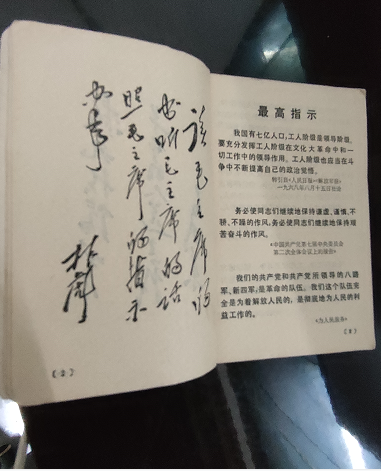 读毛主席的
书听毛主席的话
照毛主席的指示
办事
林彪
(2)
最高指示
我国有七亿人口,工人阶级是领导阶级。
要充分发挥工人阶级在文化大革命中和一
切工作中的领导作用。工人阶级也应当在斗
争中不断提高自己的政治觉悟。
转引自《人民日报》《解放军报》
一九六八年八月十五日社论
务必使同志们继续地保持谦虚、谨慎、不
骄、不躁的作风,务必使同志们继续地保持艰
苦奋斗的作风。
《中国共产党第七届中央委员会
第二次全体会议上的报告》
我们的共产党和共产党所领导的八路
军、新四军,是革命的队伍。我们这个队伍完
全是为着解放人民的,是彻底地为人民的利
益工作的。
《为人民服务》